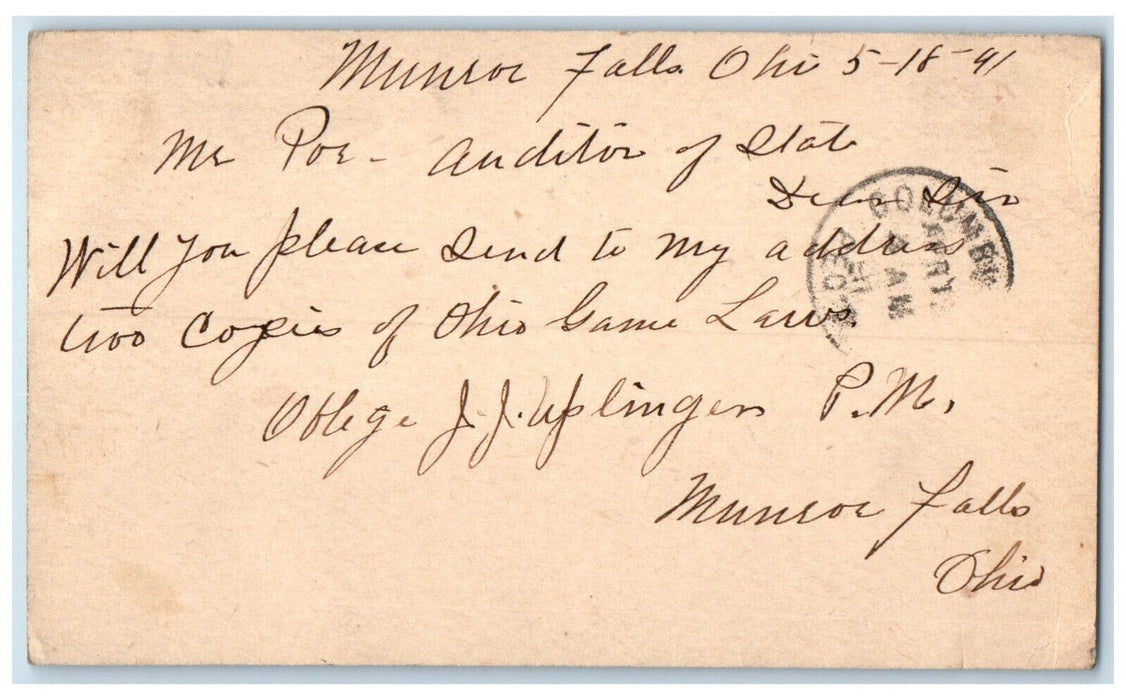 Munroe Falls Ohio 5-18-91
Mr Poe - Auditor of State
Dear Sir
Will you please send to my address
two copies of Ohio Game Laws.
Oblege J. J. Uplinger P.M.
Munroe Falls
Ohio
COLUMBU
REC'D
4 AM